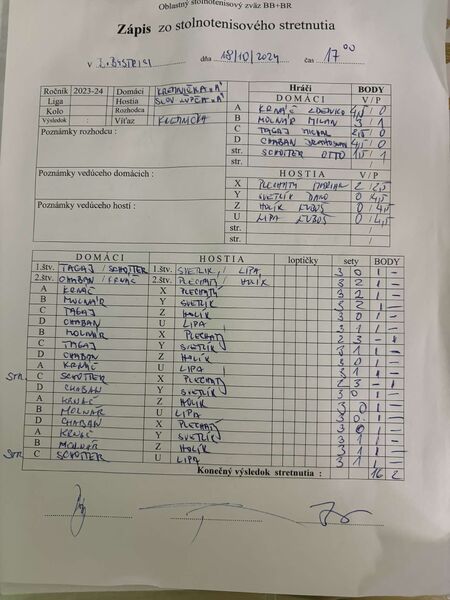 Oblastný stolnotenisový zväz BB+BR
Zápis zo stolnotenisového stretnutia
v L. BYSTRICI dňa 18/10/2024 čas 17 00
Ročník 2023-24 Domáci KREMNIČKA "A"
Liga Hostia SLOV. ĽUPČA "A"
Kolo Rozhodca
Výsledok : Víťaz KREMNIČKA
Poznámky rozhodcu :
Poznámky vedúceho domácich :
Poznámky vedúceho hostí :
Hráči BODY
DOMÁCI V / P
A KRNÁČ ZDENKO 4,5 / 0
B MOLNÁR MILAN 3 / 1
C TAGAJ MICHAL 2,5 / 0
D CHABAN DRAHOSLAV 4,5 / 0
str. SCHÖTTER OTTO 1,5 / 1
str. /
HOSTIA V / P
X PLECHATÝ MARIAN 2 / 2,5
Y SVETLÍK 0 / 4,5
Z HOLÍK ĽUBOŠ 0 / 4,5
U LIPA ĽUBOŠ 0 / 4,5
str. /
str. /
DOMÁCI HOSTIA loptičky sety BODY
1.štv. TAGAJ / SCHÖTTER 1.štv. SVETLÍK / LIPA 3 0 1 –
2.štv. CHABAN / KRNÁČ 2.štv. PLECHATÝ / HOLÍK 3 2 1 –
A KRNÁČ X PLECHATÝ 3 2 1 –
B MOLNÁR Y SVETLÍK 3 2 1 –
C TAGAJ Z HOLÍK 3 0 1 –
D CHABAN U LIPA 3 1 1 –
B MOLNÁR X PLECHATÝ 2 3 – 1
C TAGAJ Y SVETLÍK 3 1 1 –
D CHABAN Z HOLÍK 3 0 1 –
A KRNÁČ U LIPA 3 1 1 –
STR. C SCHÖTTER X PLECHATÝ 2 3 – 1
D CHABAN Y SVETLÍK 3 0 1 –
A KRNÁČ Z HOLÍK 3 0 1 –
B MOLNÁR U LIPA 3 0 1 –
D CHABAN X PLECHATÝ 3 0 1 –
A KRNÁČ Y SVETLÍK 3 1 1 –
B MOLNÁR Z HOLÍK 3 1 1 –
STR C SCHÖTTER U LIPA 3 1 1 –
Konečný výsledok stretnutia : 16 2